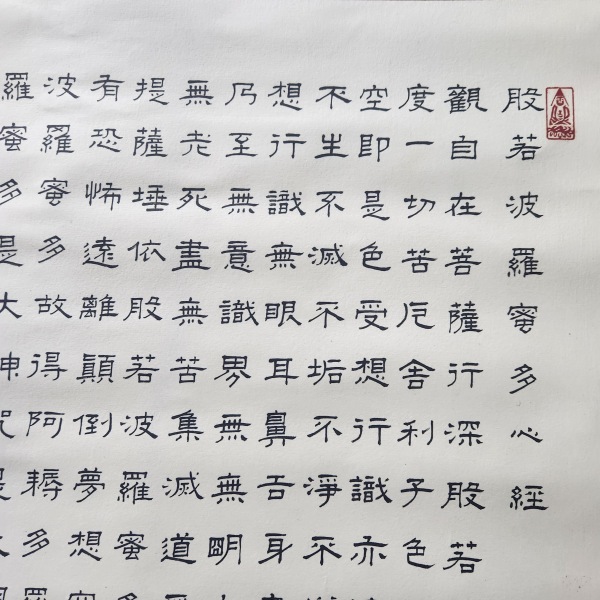 般若波羅蜜多心經
觀自在菩薩行深般若
度一切苦厄舍利子色
空即是色受想行識亦
不生不滅不垢不淨不
想行識無眼耳鼻舌身
乃至無意識界無無明
無老死盡無苦集滅道
提薩埵依般若波羅蜜多
有恐怖遠離顛倒夢想
波羅蜜多故得阿耨多羅
羅蜜多是大神咒是大